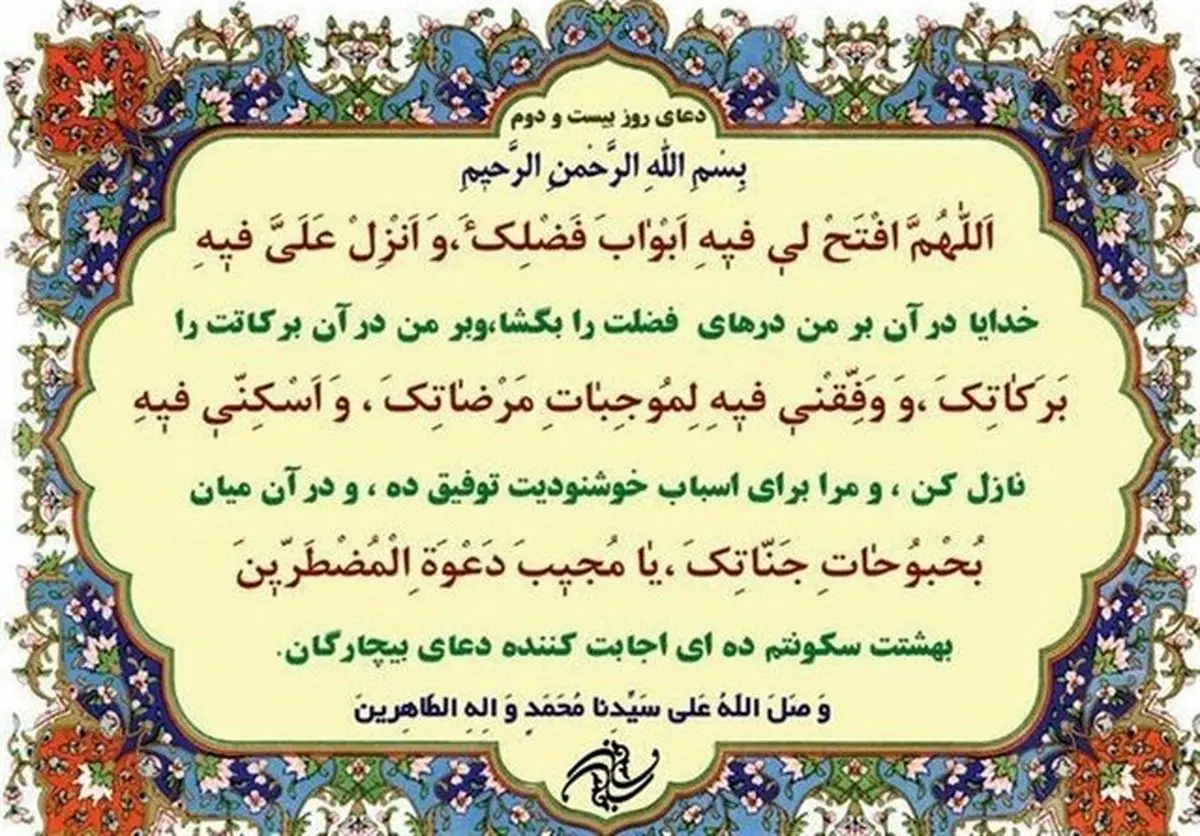 دعای روز بیست و دوم
بِسْمِ اللهِ الرَّحْمنِ الرَّحیمِ
اَللّٰهُمَّ افْتَحْ لی فیهِ اَبْوٰابَ فَضْلِکَ ،وَ اَنْزِلْ عَلَیَّ فیهِ
خدایا در آن بر من درهای فضلت را بگشا،وبر من در آن برکاتت را
بَرَکٰاتِکَ ،وَ وَفِّقْنی فیهِ لِمُوجِبٰاتِ مَرْضٰاتِکَ ، وَ اَسْکِنّی فیهِ
نازل کن ، و مرا برای اسباب خوشنودیت توفیق ده ، و در آن میان
بُحْبُوحٰاتِ جَنّاتِکَ ،یٰا مُجیبَ دَعْوَةِ الْمُضْطَرّینَ
بهشتت سکونتم ده ای اجابت کننده دعای بیچارگان.
وَ صَلَ اللهُ عَلی سَیِّدِنا مُحَمَدٍ وَ الِهِ الطّاهِرینَ